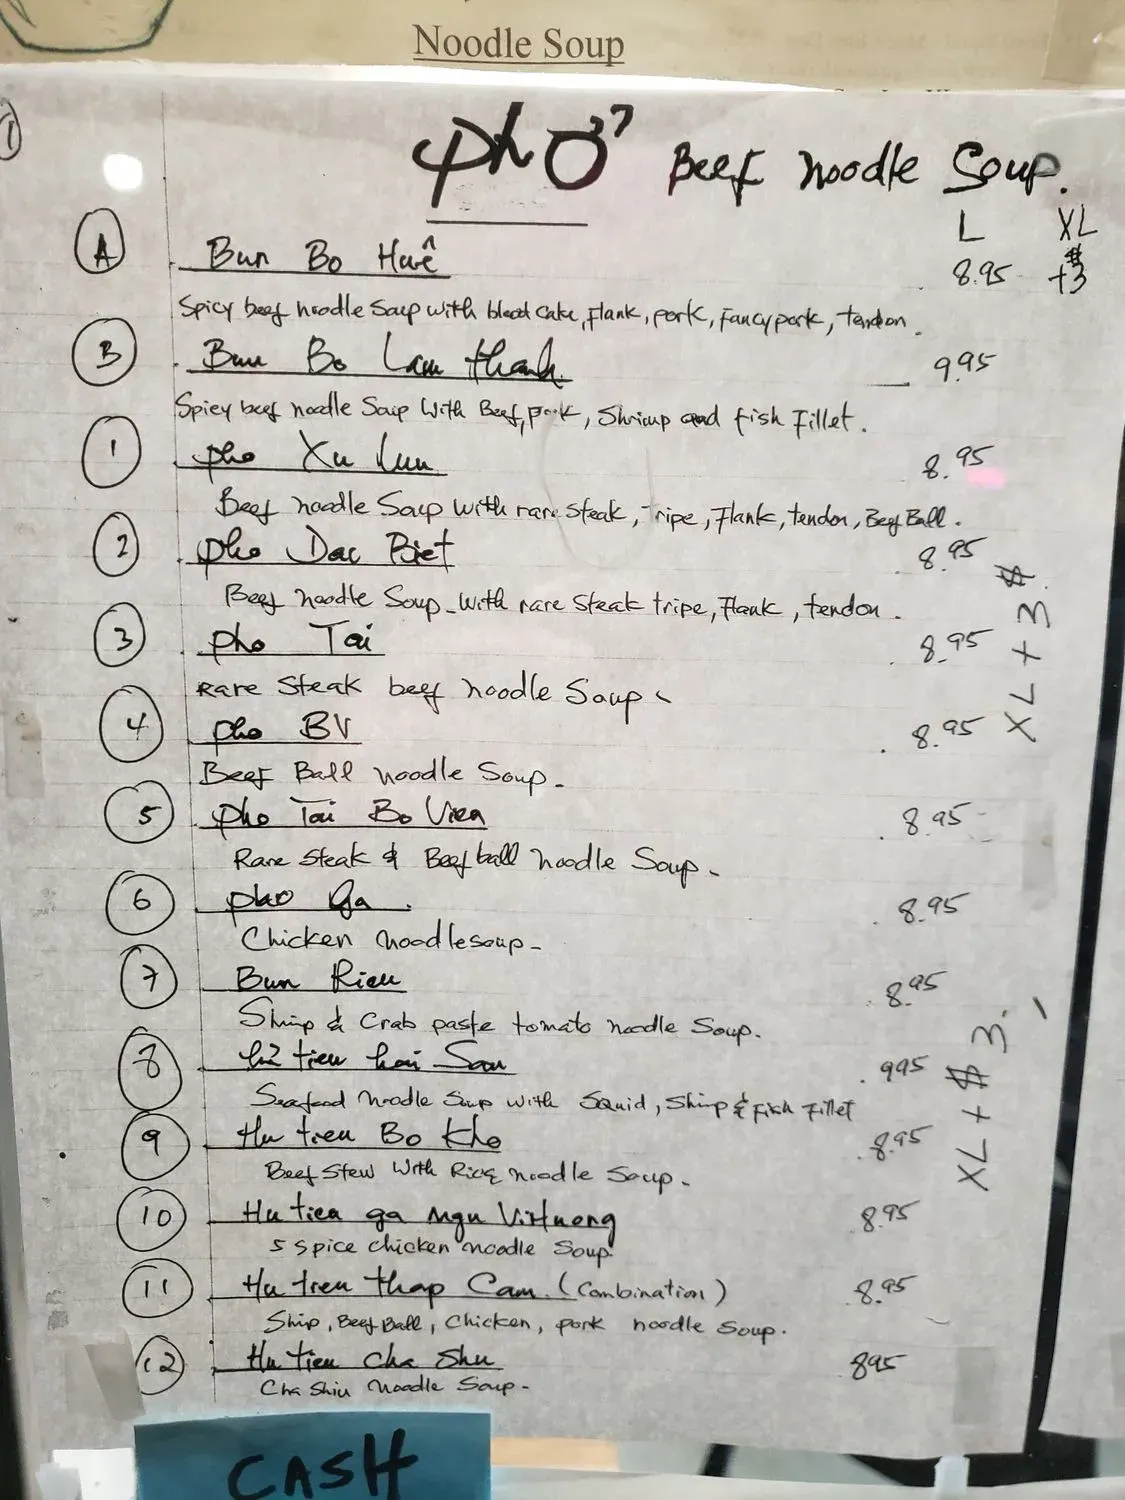 Noodle Soup
1
phở Beef Noodle Soup.
L XL
A Bun Bo Huê 8.95 +$3
Spicy beef noodle Soup with blood cake, Flank, pork, Fancy pork, tendon.
B Bun Bo Lam thanh 9.95
Spicy beef noodle Soup with Beef, pork, Shrimp and fish Fillet.
1 pho Xu Lun 8.95
Beef noodle Soup with rare Steak, Tripe, Flank, tendon, Beef Ball.
2 pho Dac Biet 8.95
Beef noodle Soup with rare Steak tripe, Flank, tendon.
3 pho Tai 8.95
Rare Steak beef noodle Soup
XL + 3$
4 pho BV 8.95
Beef Ball noodle Soup.
5 pho Tai Bo Vien 8.95
Rare Steak & Beef ball noodle Soup.
6 pho Ga 8.95
Chicken noodlesoup
7 Bun Rieu 8.95
Shrip & Crab paste tomato noodle Soup.
8 hủ tieu hai San 995
Seafood noodle Soup with Squid, Shrip & Fish Fillet
XL + $3.
9 Hu tieu Bo Kho 8.95
Beef Stew With Rice noodle Soup.
10 Hu tieu ga ngu Vi Huong 8.95
5 spice chicken noodle Soup.
11 Hu tieu thap Cam. (Combination) 8.95
Ship, Beef Ball, Chicken, pork noodle Soup.
12 Hu tieu Cha Shu 895
Cha Shiu noodle Soup.
CASH